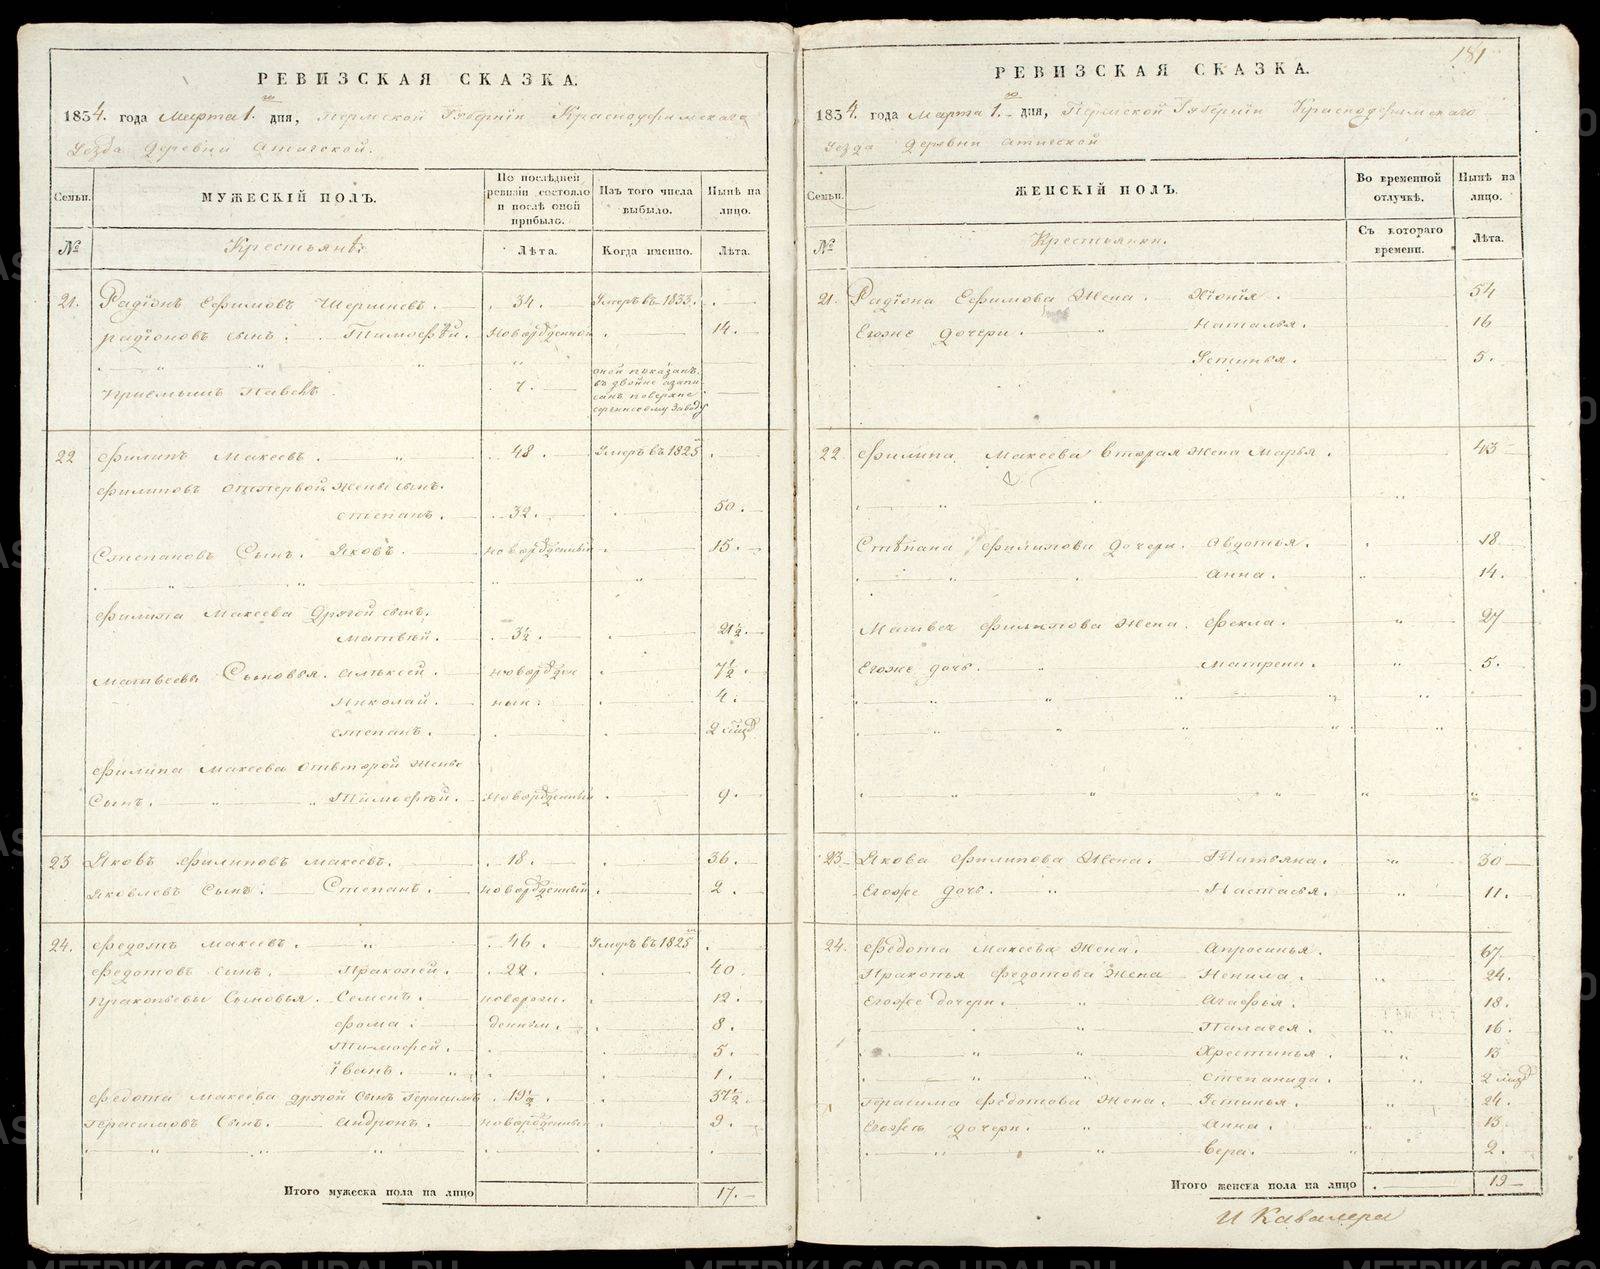 РЕВИЗСКАЯ СКАЗКА.
1834. года Марта 1.го дня, Пермской Губернии Красноуфимскаго
Уезда Деревни Атигской.
Семьи.
МУЖЕСКІЙ ПОЛЪ.
По послѣдней ревизіи состояло и послѣ оной прибыло.
Изъ того числа выбыло.
Нынѣ на лицо.
№
Крестьянѣ:
Лѣта.
Когда именно.
Лѣта.
21. Радіонъ Ефимовъ . 34. Умеръ въ 1833.
радіоновъ сынъ. Тимофѣй. Новорожденной 14.
Приемышъ Павелъ 7. оной показанъ въ двойне
22 Филипъ Макеевъ. 48. Умеръ въ 1825
Филиповъ отпервой жены сынъ.
степанъ. 32. 50.
Степановъ Сынъ. Яковъ. новорожденный 15.
Филипа Макеева Другой сынъ.
матвѣй. 3½. 21½.
матвеевы Сыновья. алъксей. новорожден 7½.
Николай. ныи: 4.
степанъ. 2 мѣсяц
Филипа Макеева отвторой жены
Сынъ. Тимофѣй. Новорожденный 9.
23 Яковъ Филиповъ макеевъ. 18. 36.
Яковлевъ Сынъ. Степанъ. новорожденный 2.
24. Федотъ макеевъ. 46. Умеръ въ 1825
Федотовъ сынъ. Пракопей. 22. 40.
Пракопьевы Сыновья. Семенъ. новорож. 12.
фома. денныи. 8.
Тимофей. 5.
Іванъ. 1.
Федота макеева другой сынъ Герасимъ 19½. 37½.
Герасимовъ Сынъ. андронъ. новорожденный 9.
Итого мужеска пола на лицо 17.
181
РЕВИЗСКАЯ СКАЗКА.
1834. года марта 1.го дня, Пермской Губерніи Красноуфимскаго
Уезда деревни атигской
Семьи.
ЖЕНСКІЙ ПОЛЪ.
Во временной отлучкѣ.
Нынѣ на лицо.
№
Крестьянки.
Съ котораго времени.
Лѣта.
21. Радіона Ефимова Жена. Хіонія. 54
Егоже дочери. Наталья. 16
Устинья. 5.
22. Филипа Макеева вторая жена Марья. 43
Степана Филипова дочери. Авдотья. 18.
Анна. 14.
Матвея Филипова Жена. Фекла. 27
Егоже дочь. матрена. 5.
23 Якова Филипова Жена. Татьяна. 30
Егоже дочь. Настасья. 11.
24. Федота Макеева Жена. Апросинья. 67.
Пракопья Федотова Жена Ненила. 24.
Егоже дочери. Агафья. 18.
Палагея. 16.
Хрестинья. 13
степанида. 2 мѣсяц
Герасима Федотова Жена. Устинья. 24.
Егоже дочери. Анна. 13.
вера. 2.
Итого женска пола на лицо 19
И Кавалера